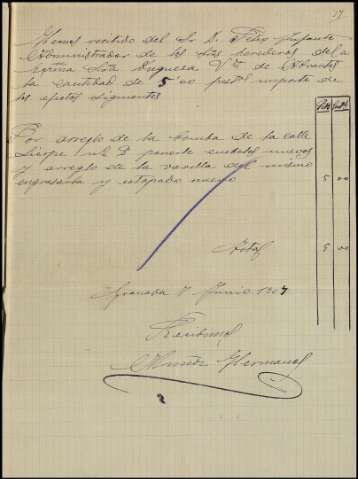 17
Hemos recibido del Sr D. Felix Infante
Administrador de los Sres herederos de la
Exma Sra Duquesa Vda de Abrantes
la cantidad de 5'00 pesetas importe de
los efectos siguientes
Por arreglo de la bomba de la calle
ponerle cueros nuevos
y arreglo de la varilla del mismo
engrasarla y estopado nuevo 5 00
Total 5 00
Granada 7 Junio 1907
Recibimos
Muñoz Hermanos